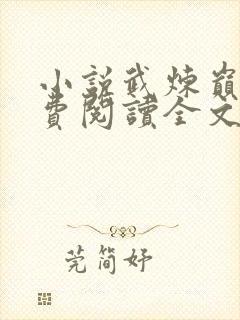 小説武煉巔
費閱讀全文
莞簡妤